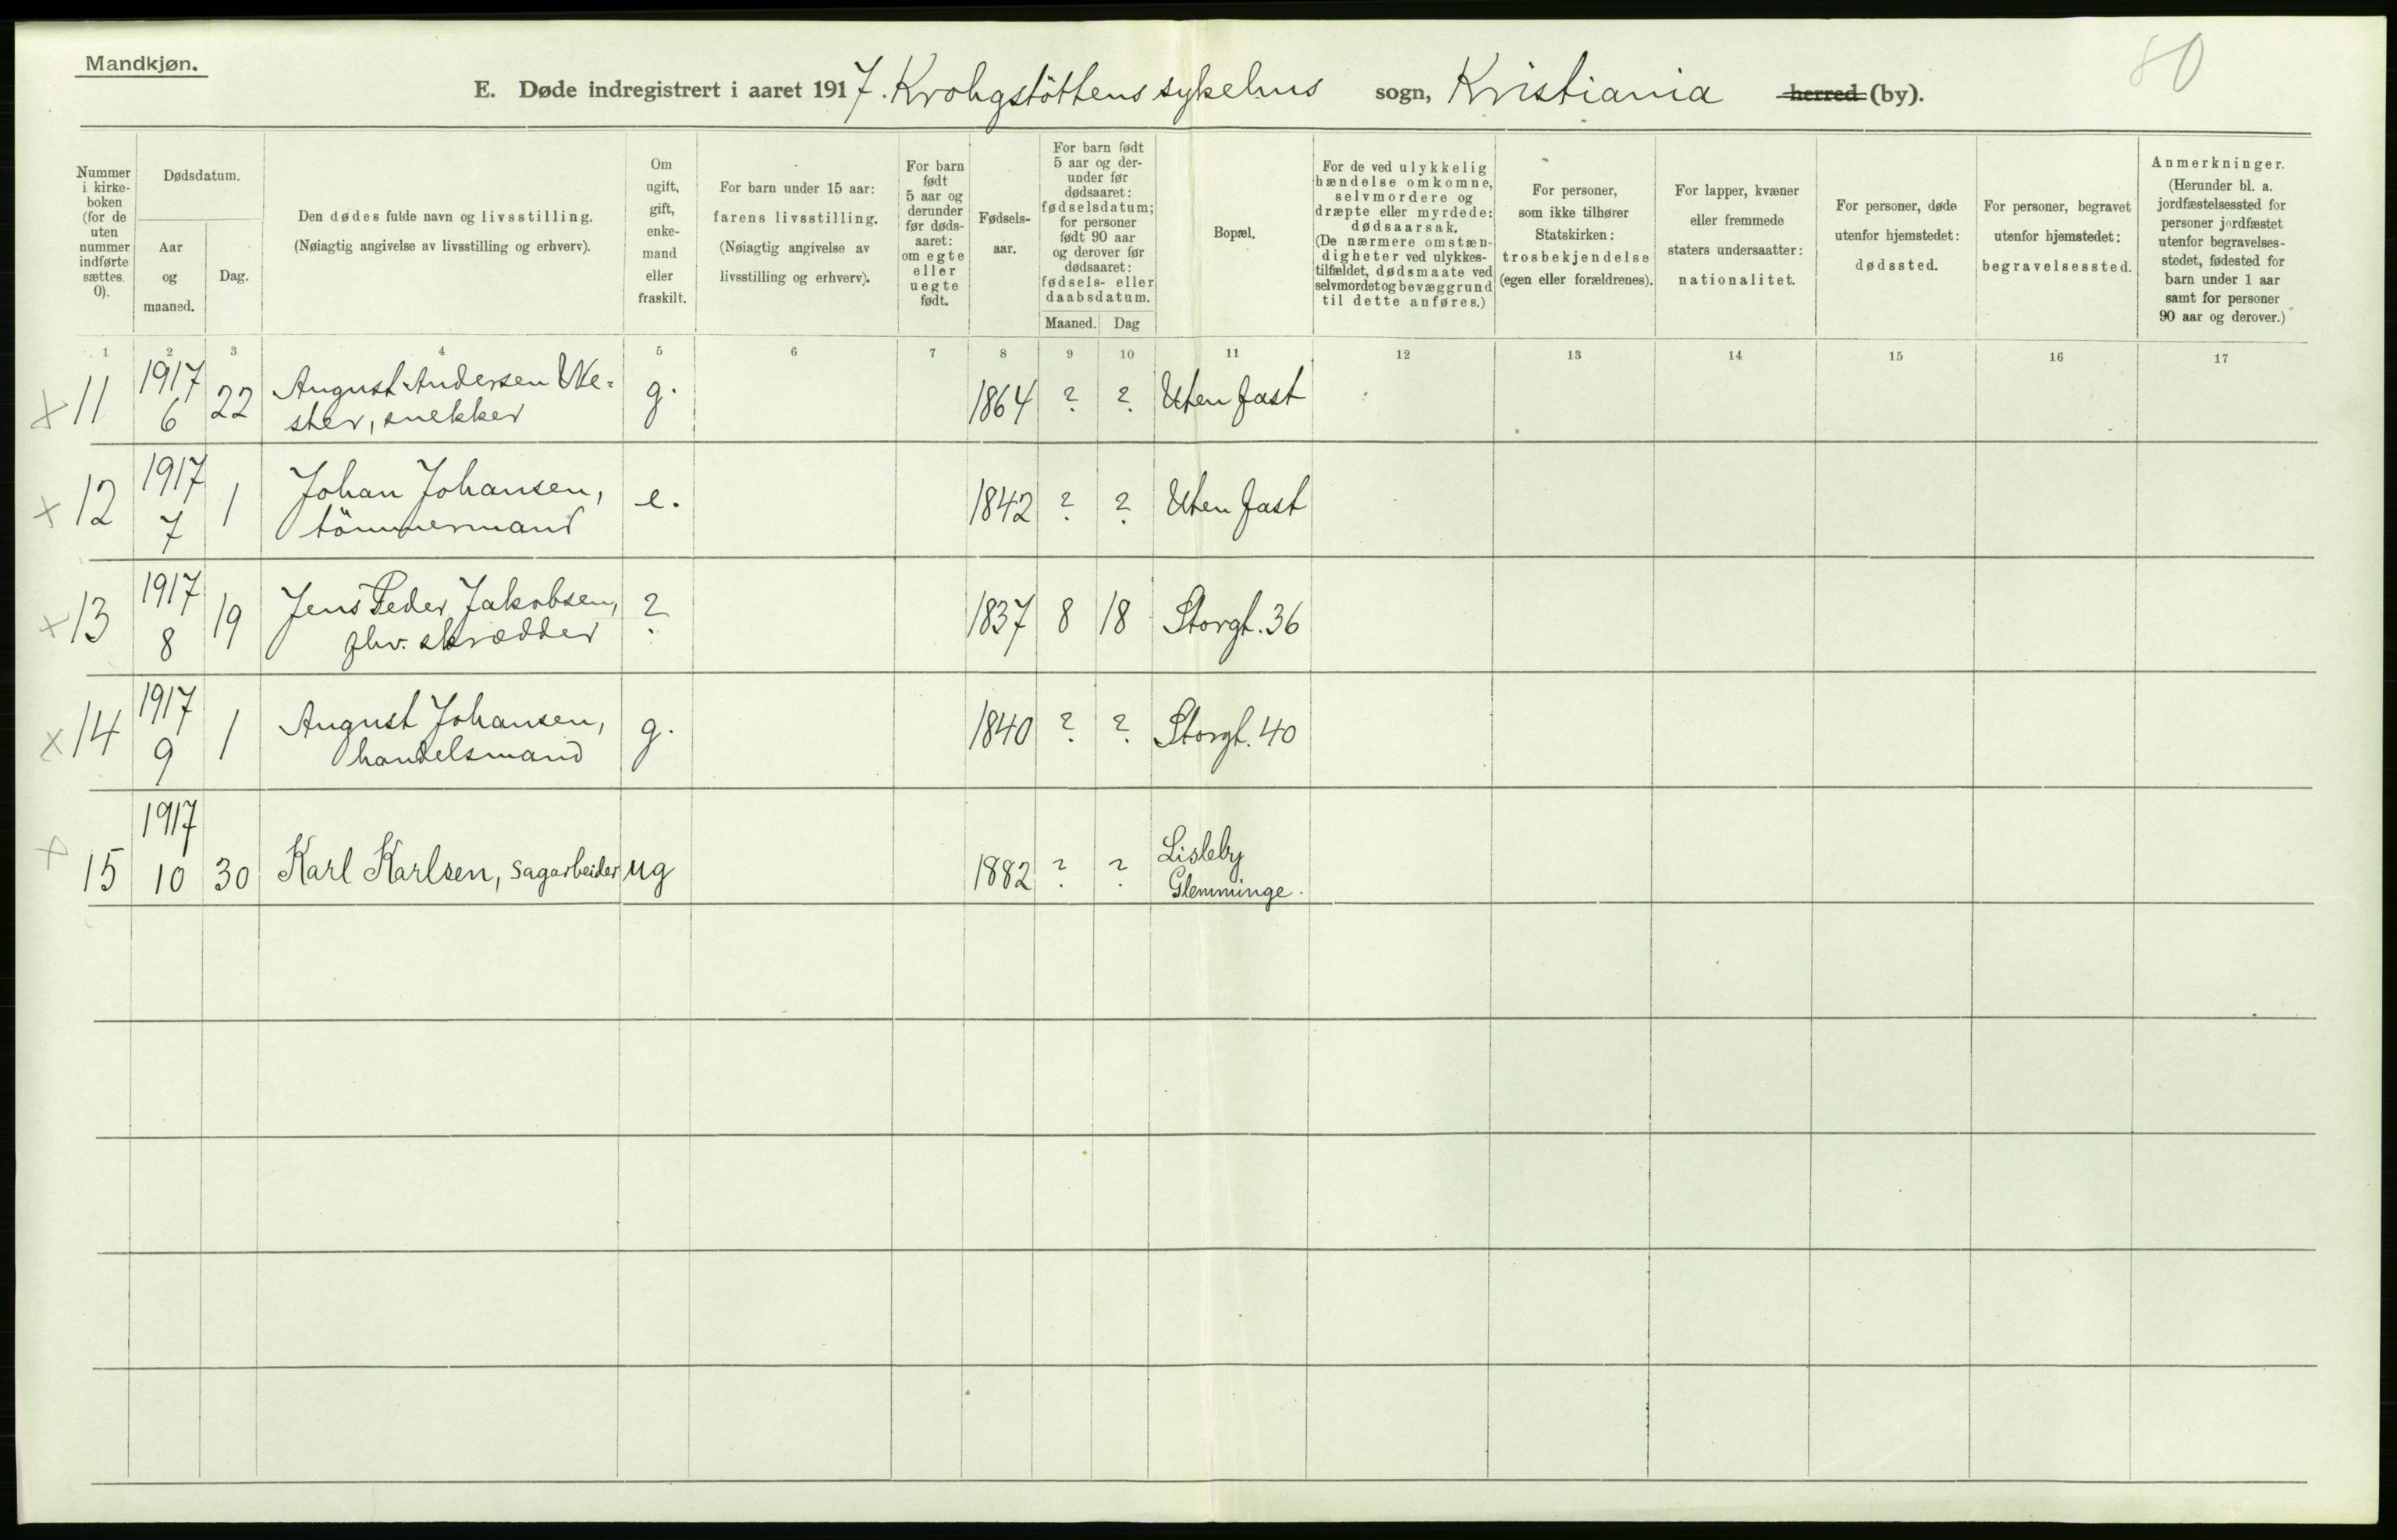 Mandkjøn.
80
E. Døde indregistrert i aaret 1917. Krohgstöttens sykehus sogn, Kristiania herred (by).
Nummer i kirkeboken (for de uten nummer indførte sættes 0).
Dødsdatum.
Aar og maaned.
Dag.
Den dødes fulde navn og livsstilling.
(Nøiagtig angivelse av livsstilling og erhverv).
Om ugift, gift, enkemand eller fraskilt.
For barn under 15 aar:
farens livsstilling.
(Nøiagtig angivelse av livsstilling og erhverv).
For barn født 5 aar og derunder før dødsaaret: om egte eller uegte født.
Fødselsaar.
For barn født 5 aar og derunder før dødsaaret: fødselsdatum; for personer født 90 aar og derover før dødsaaret: fødsels- eller daabsdatum.
Maaned.
Dag
Bopæl.
For de ved ulykkelig hændelse omkomne, selvmordere og dræpte eller myrdede: dødsaarsak.
(De nærmere omstændigheter ved ulykkestilfældet, dødsmaate ved selvmordet og bevæggrund til dette anføres.)
For personer, som ikke tilhører Statskirken: trosbekjendelse (egen eller forældrenes).
For lapper, kvæner eller fremmede staters undersaatter: nationalitet.
For personer, døde utenfor hjemstedet: dødssted.
For personer, begravet utenfor hjemstedet: begravelsessted.
Anmerkninger.
(Herunder bl. a. jordfæstelsessted for personer jordfæstet utenfor begravelsesstedet, fødested for barn under 1 aar samt for personer 90 aar og derover.)
1 2 3 4 5 6 7 8 9 10 11 12 13 14 15 16 17
x 11 1917 6 22 August Andersen
ster, snekker g. 1864 ? ? Uten fast
x 12 1917 7 1 Johan Johansen,
tömmermand e. 1842 ? ? Uten fast
x 13 1917 8 19 Jens Peder Jakobsen,
fhv. skrædder ? 1837 8 18 Storgt. 36
x 14 1917 9 1 August Johansen,
handelsmand g. 1840 ? ? Storgt. 40
x 15 1917 10 30 Karl Karlsen, Sagarbeider ug 1882 ? ? Lisleby
Glemminge.